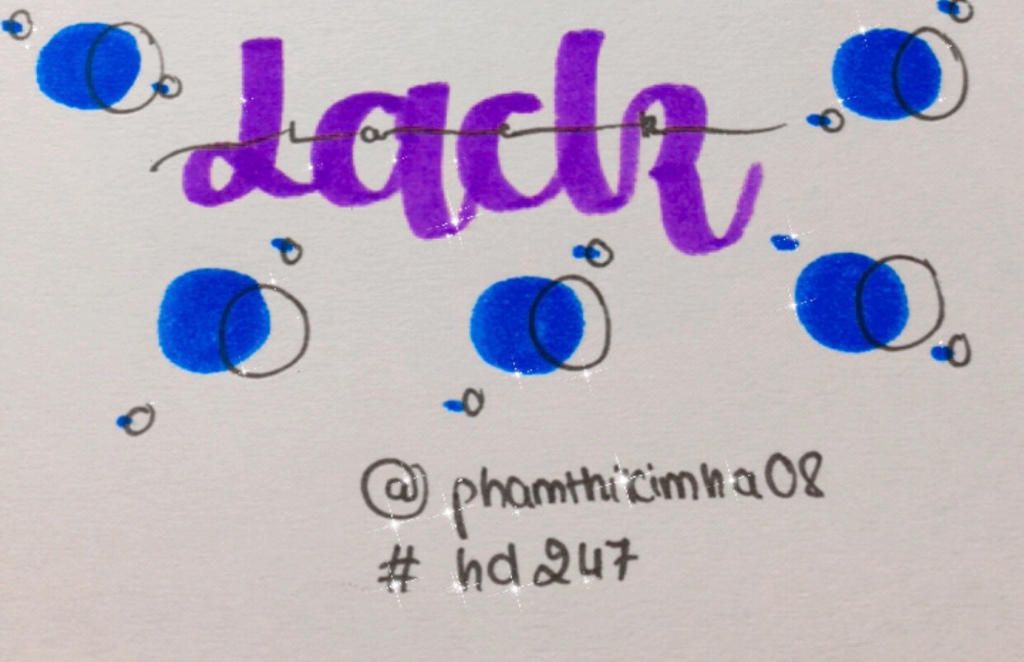 Lack
L a c k
@phamthikimha08
# hd247